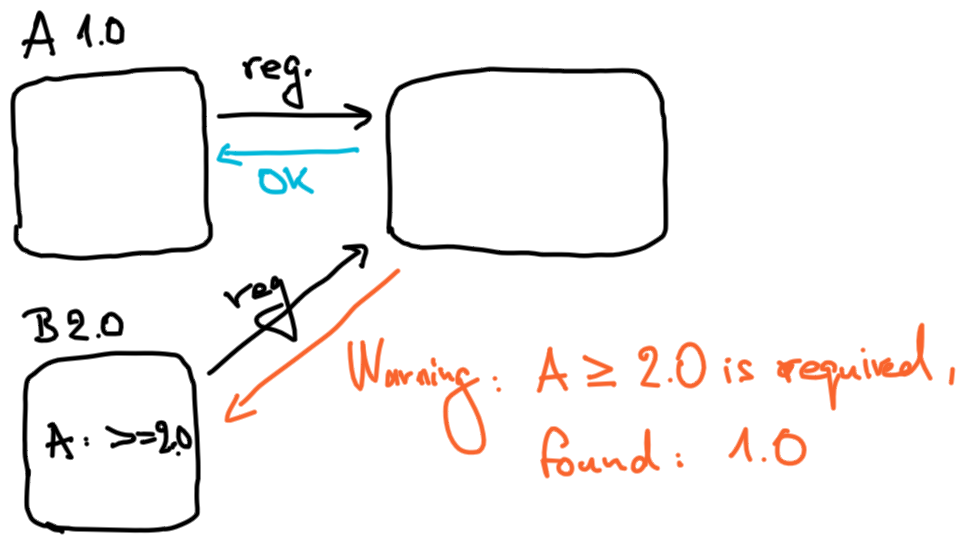 A 1.0
reg.
OK
reg
B 2.0
A: >=2.0
Warning: A ≥ 2.0 is required,
found: 1.0